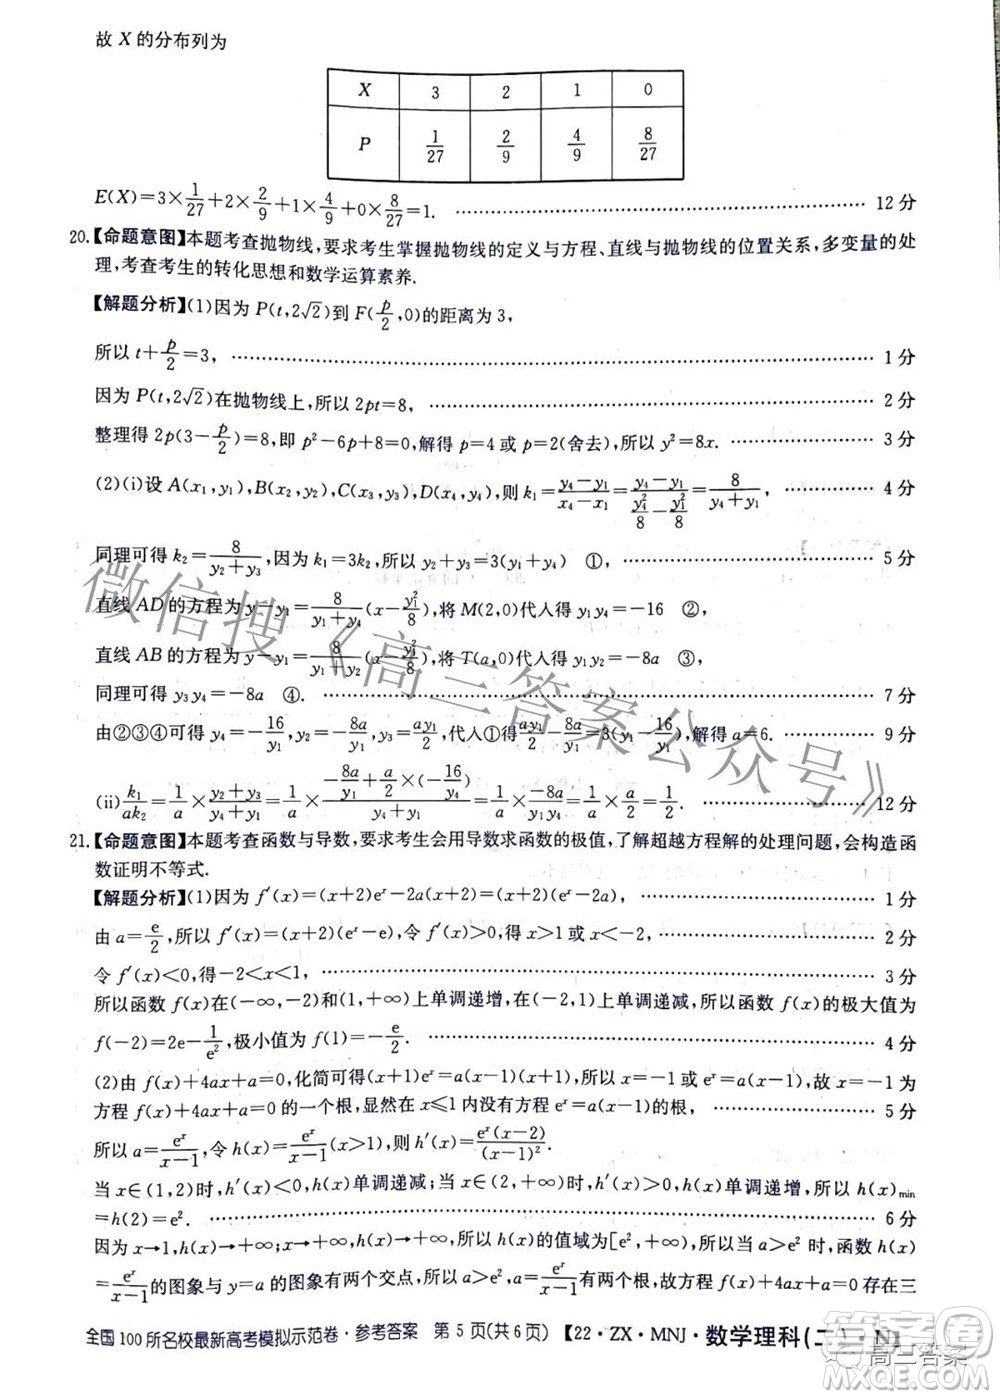 故 X 的分布列为
X 3 2 1 0
P 1/27 2/9 4/9 8/27
E(X)=3×1/27+2×2/9+1×4/9+0×8/27=1. ………… 12 分
20.【命题意图】本题考查抛物线,要求考生掌握抛物线的定义与方程、直线与抛物线的位置关系,多变量的处
理,考查考生的转化思想和数学运算素养.
【解题分析】(1)因为 P(t,2√2)到 F(p/2,0)的距离为 3,
所以 t+p/2=3, ………… 1 分
因为 P(t,2√2)在抛物线上,所以 2pt=8, ………… 2 分
整理得 2p(3−p/2)=8,即 p²−6p+8=0,解得 p=4 或 p=2(舍去),所以 y²=8x. ………… 3 分
(2)(i)设 A(x₁,y₁),B(x₂,y₂),C(x₃,y₃),D(x₄,y₄),则 k₁=(y₄−y₁)/(x₄−x₁)=(y₄−y₁)/(y₄²/8−y₁²/8)=8/(y₄+y₁), ………… 4 分
同理可得 k₂=8/(y₂+y₃),因为 k₁=3k₂,所以 y₂+y₃=3(y₄+y₁) ①, ………… 5 分
直线 AD 的方程为 y−y₁=8/(y₁+y₄)(x−y₁²/8),将 M(2,0)代人得 y₁y₄=−16 ②,
直线 AB 的方程为 y−y₁=8/(y₁+y₂)(x−y₁²/8),将 T(a,0)代人得 y₁y₂=−8a ③,
同理可得 y₃y₄=−8a ④. ………… 7 分
由②③④可得 y₄=−16/y₁,y₂=−8a/y₁,y₃=ay₁/2,代人①得 ay₁/2−8a/y₁=3(y₁−16/y₁),解得 a=6. ………… 9 分
(ii)k₁/ak₂=1/a×(y₂+y₃)/(y₄+y₁)=1/a×(−8a/y₁+a/2×(−16/y₄))/(y₄+y₁)=1/a×−8a/y₁y₄=1/a×a/2=1/2. ………… 12 分
21.【命题意图】本题考查函数与导数,要求考生会用导数求函数的极值,了解超越方程解的处理问题,会构造函
数证明不等式.
【解题分析】(1)因为 f′(x)=(x+2)eˣ−2a(x+2)=(x+2)(eˣ−2a), ………… 1 分
由 a=e/2,得 f′(x)=(x+2)(eˣ−e),令 f′(x)>0,得 x>1 或 x<−2, ………… 2 分
令 f′(x)<0,得−2<x<1, ………… 3 分
所以函数 f(x)在(−∞,−2)和(1,+∞)上单调递增,在(−2,1)上单调递减,所以函数 f(x)的极大值为
f(−2)=2e−1/e²,极小值为 f(1)=−e/2. ………… 4 分
(2)由 f(x)+4ax=0,化简可得(x+1)eˣ=a(x²−1)=a(x+1)(x−1),所以(x+1)[eˣ−a(x−1)]=0,故 x=−1 为
方程 f(x)+4ax=0 的一个根,此外在 x≤1 内没有方程的根, ………… 5 分
所以 a=eˣ/(x−1),令 h(x)=eˣ/(x−1)(x>1),则 h′(x)=eˣ(x−2)/(x−1)².
当 x∈(1,2)时,h′(x)<0,h(x)单调递减;当 x∈(2,+∞)时,h′(x)>0,h(x)单调递增,所以 h(x)min
=h(2)=e². ………… 6 分
因为 x→1,h(x)→+∞;x→+∞,h(x)→+∞,所以 h(x)的值域为[e²,+∞),所以当 a>e²时,函数 h(x)
=eˣ/(x−1)的图象与 y=a 的图象有两个交点,所以 a>e²时,a=eˣ/(x−1)有两个根,故方程 f(x)+4ax=0 存在三
全国 100 所名校最新高考模拟示范卷·参考答案 第 5 页(共 6 页) 【22·ZX·MNJ·数学理科(二)·N】
微信搜《高三答案公众号》
高三答案